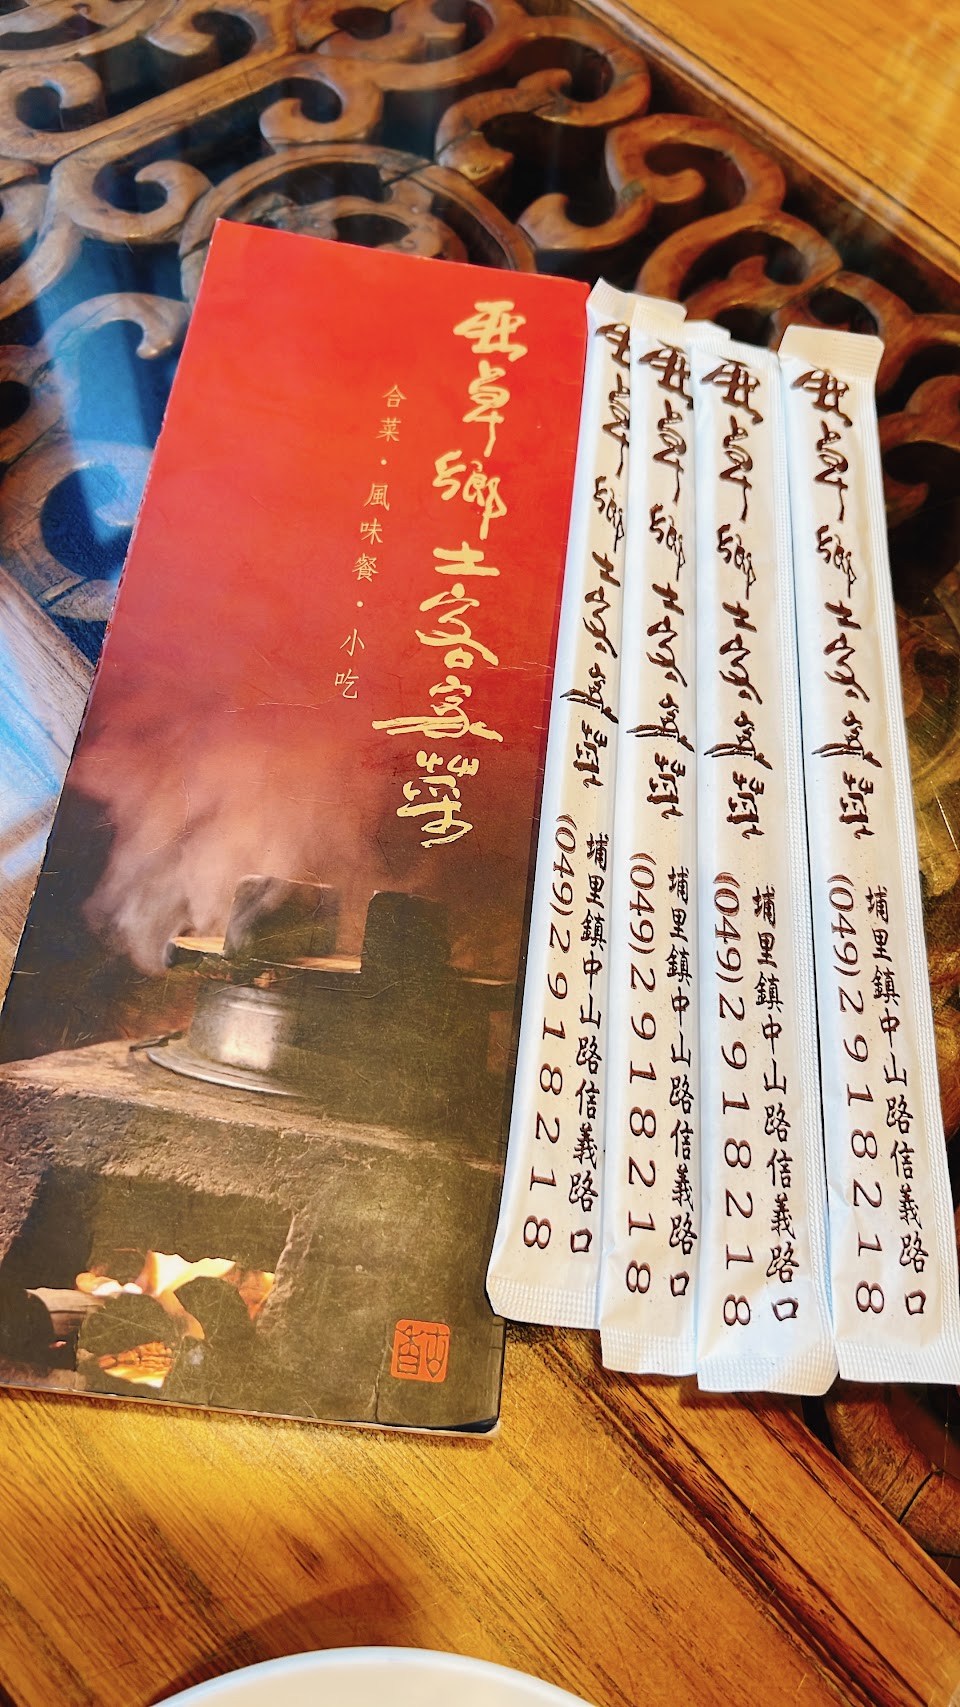 亞卓鄉土客家菜
合菜·風味餐·小吃
亞卓鄉土客家菜
埔里鎮中山路信義路口
(049)2918218
亞卓鄉土客家菜
埔里鎮中山路信義路口
(049)2918218
亞卓鄉土客家菜
埔里鎮中山路信義路口
(049)2918218
亞卓鄉土客家菜
埔里鎮中山路信義路口
(049)2918218